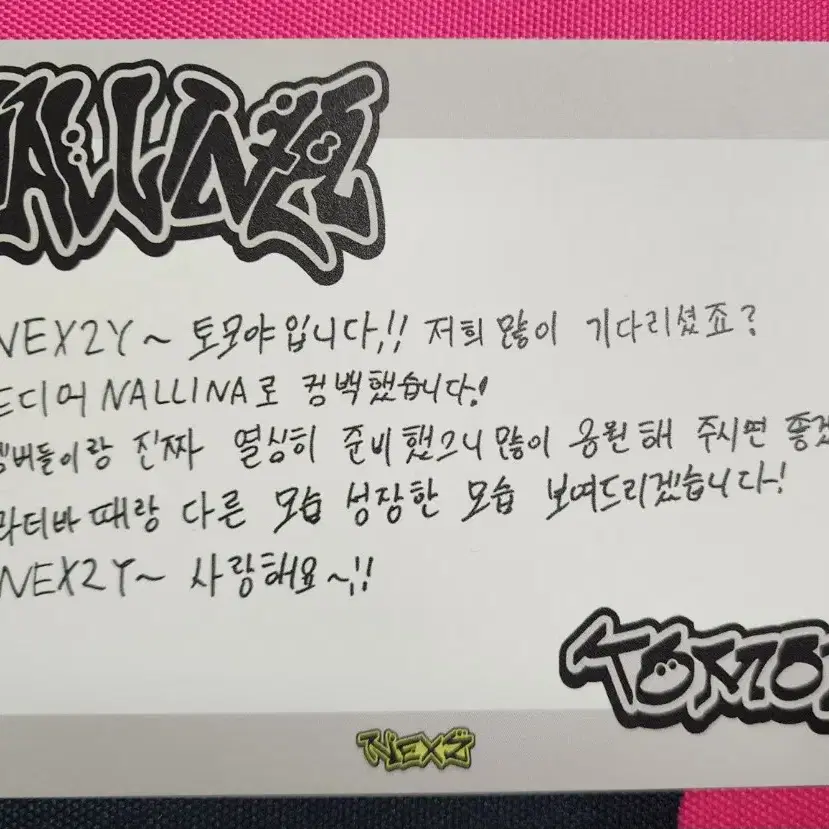 NALLINA
NEX2Y~ 토모야입니다!! 저희 많이 기다리셨죠?
드디어 NALLINA로 컴백했습니다!
멤버들이랑 진짜 열심히 준비했으니 많이 응원해 주시면 좋겠
라타바 때랑 다른 모습 성장한 모습 보여드리겠습니다!
NEX2Y~ 사랑해요~!!
TOMOY
NEXZ